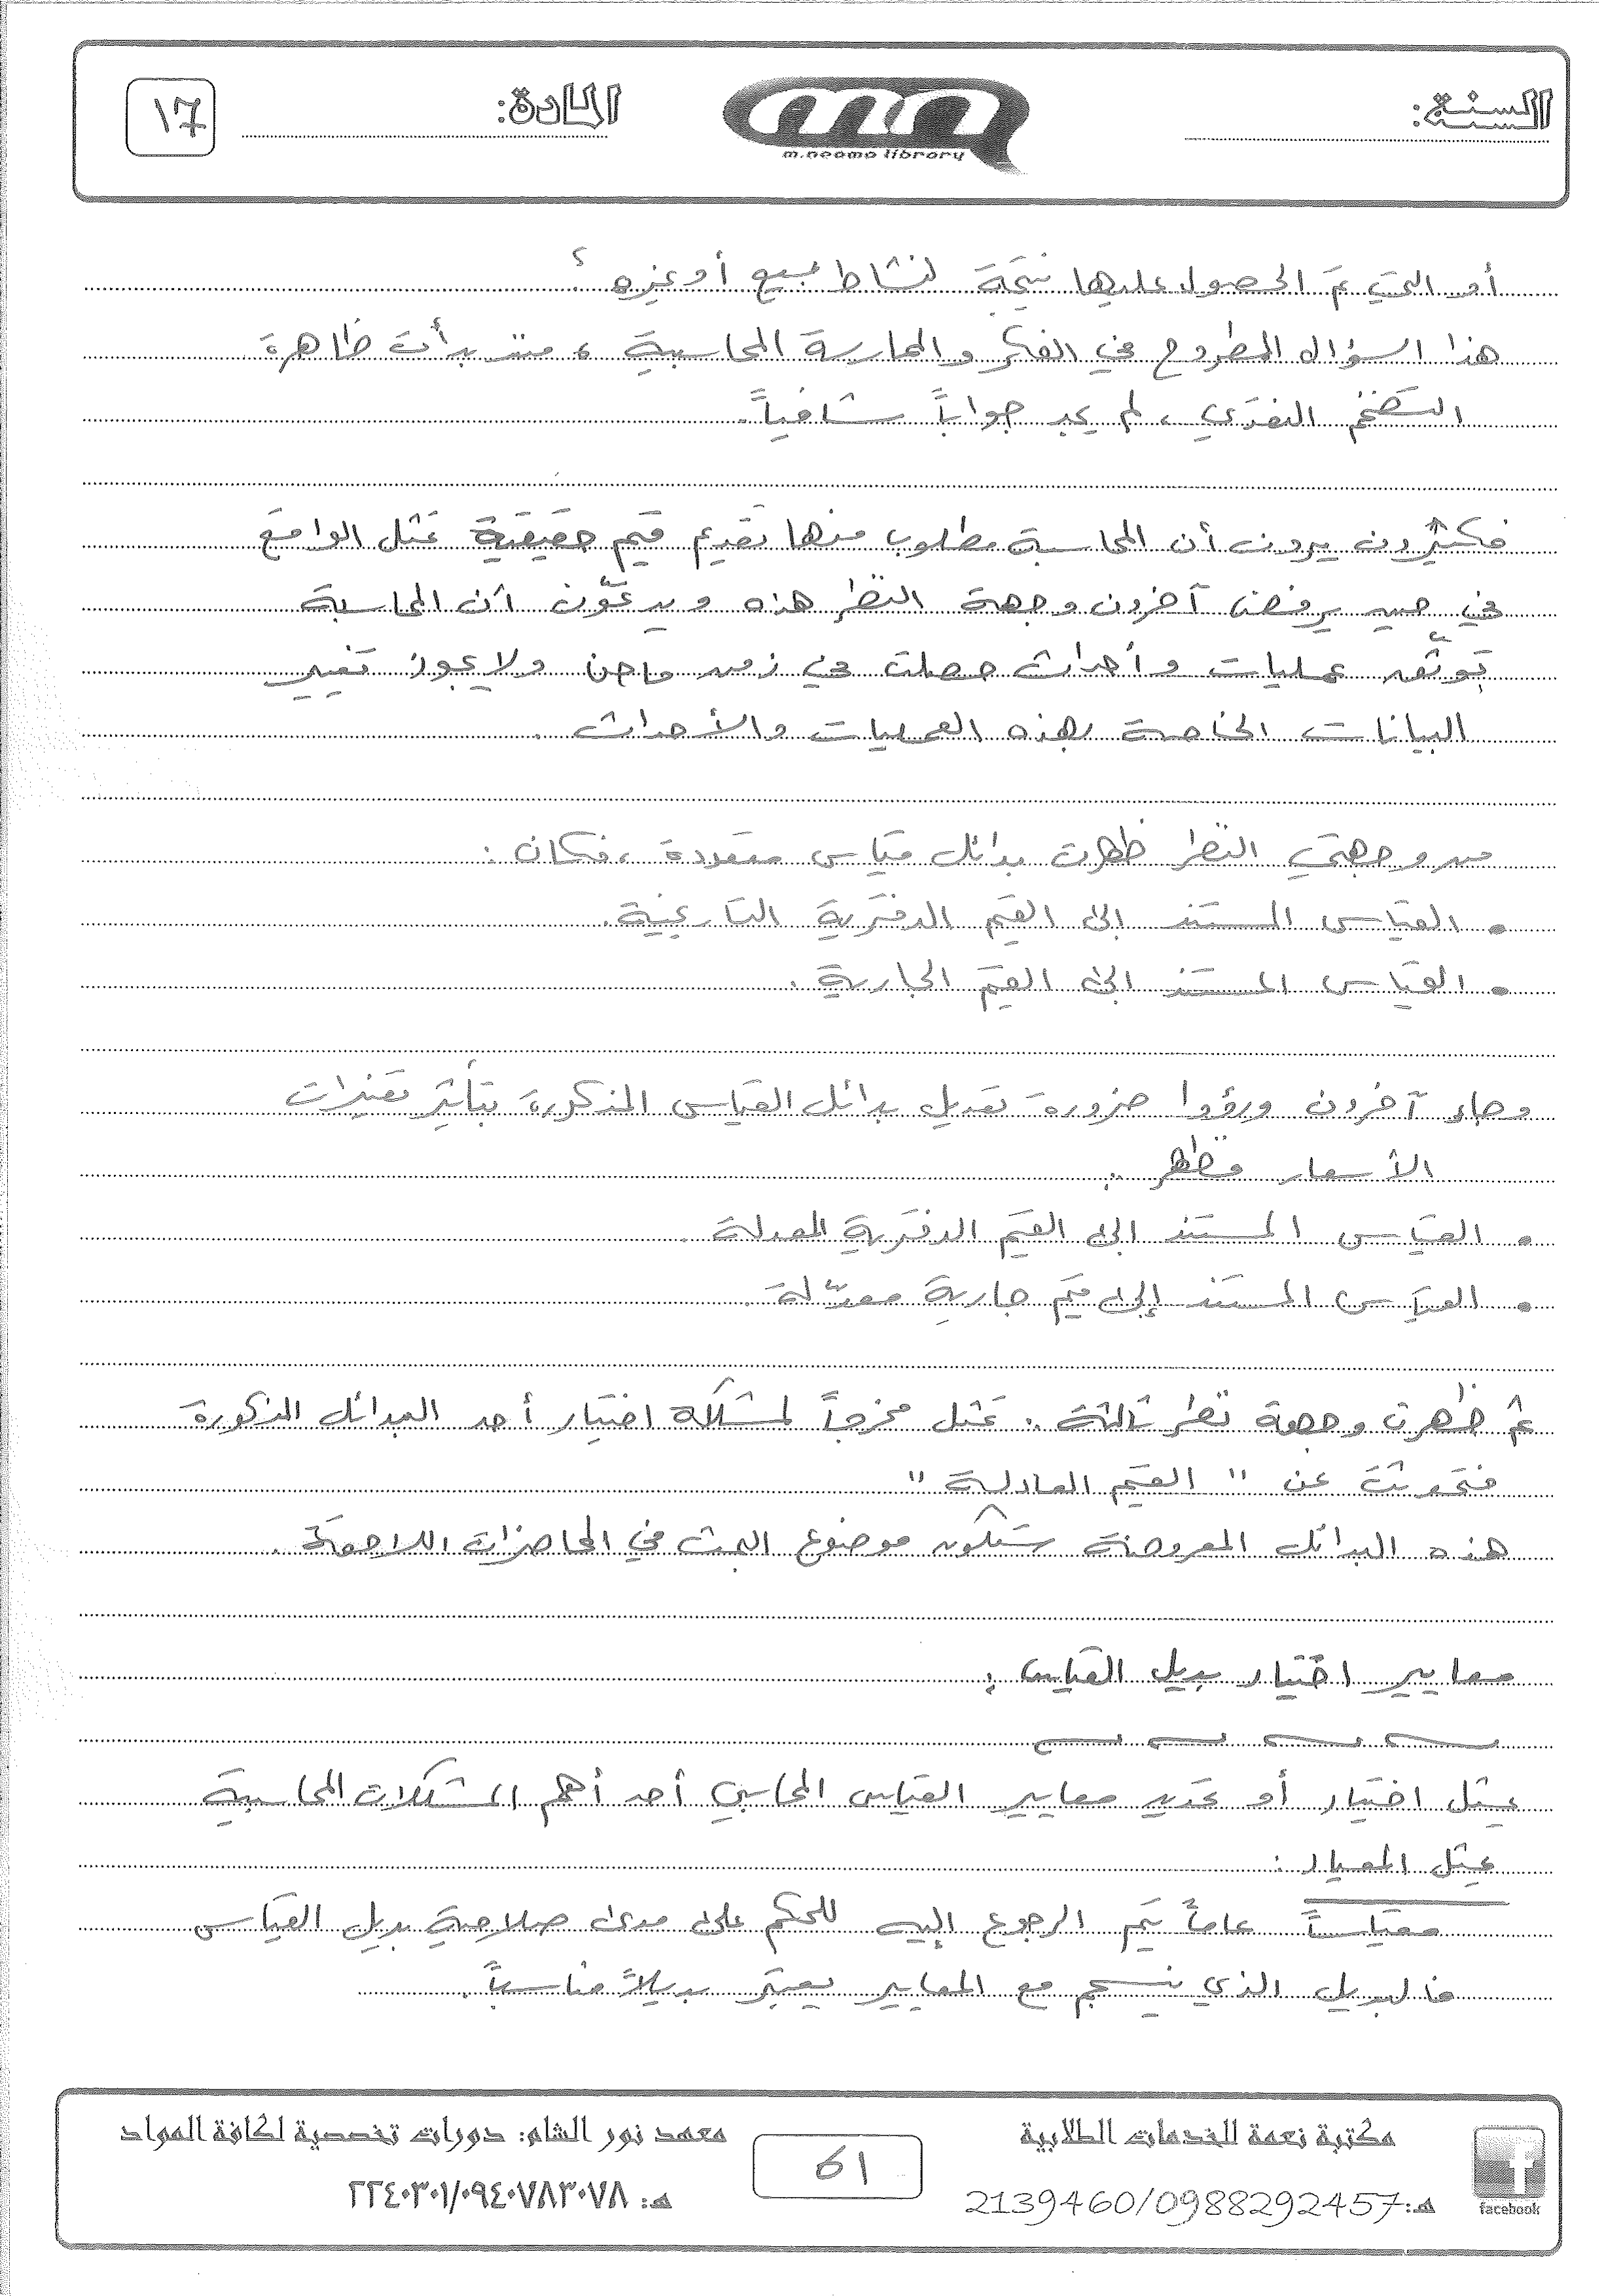 السنة:
m.neama library
المادة:
١٧
أو التي تم الحصول عليها نتيجة لنشاط بيع أو غيره ؟
هذا السؤال المطروح في الفكر والممارسة المحاسبية ، منذ بدأت ظاهرة
التضخم النقدي ، لم يجد جواباً شافياً.
فكثيرون يرون أن المحاسبة مطلوب منها تقديم قيم حقيقية تمثل الواقع
في حين يرفض آخرون وجهة النظر هذه ويدعّون أن المحاسبة
توثّق عمليات وأحداث حصلت في زمن ماض ولا يجوز تغيير
البيانات الخاصة بهذه العمليات والأحداث .
من وجهتي النظر ظهرت بدائل قياس متعددة ، فكان :
• القياس المستند إلى القيم الدفترية التاريخية.
• القياس المستند إلى القيم الجارية .
وجاء آخرون ورؤوا ضرورة تعديل بدائل القياس المذكورة بتأثير تغيرات
الأسعار فظهر :
• القياس المستند إلى القيم الدفترية المعدلة .
• القياس المستند إلى قيم جارية معدّلة .
ثم ظهرت وجهة نظر ثالثة : تمثل مخرجاً لمشكلة اختيار أحد البدائل المذكورة
فتحدثت عن " القيم العادلة "
هذه البدائل المعروضة ستكون موضوع البحث في المحاضرات اللاحقة .
معايير اختيار بديل القياس :
يمثل اختيار أو تحديد معايير القياس المحاسبي أحد أهم المشكلات المحاسبية
يمثل المعيار :
مقياساً عاماً يتم الرجوع إليه للحكم على مدى صلاحية بديل القياس
فالبديل الذي ينسجم مع المعايير يعتبر بديلاً مناسباً .
مكتبة نعمة للخدمات الطلابية
هـ: 2139460/0988292457
facebook
61
معهد نور الشام: دورات تخصصية لكافة المواد
هـ: ٢٢٤٠٣٠١/٠٩٤٠٧٨٣٠٧٨